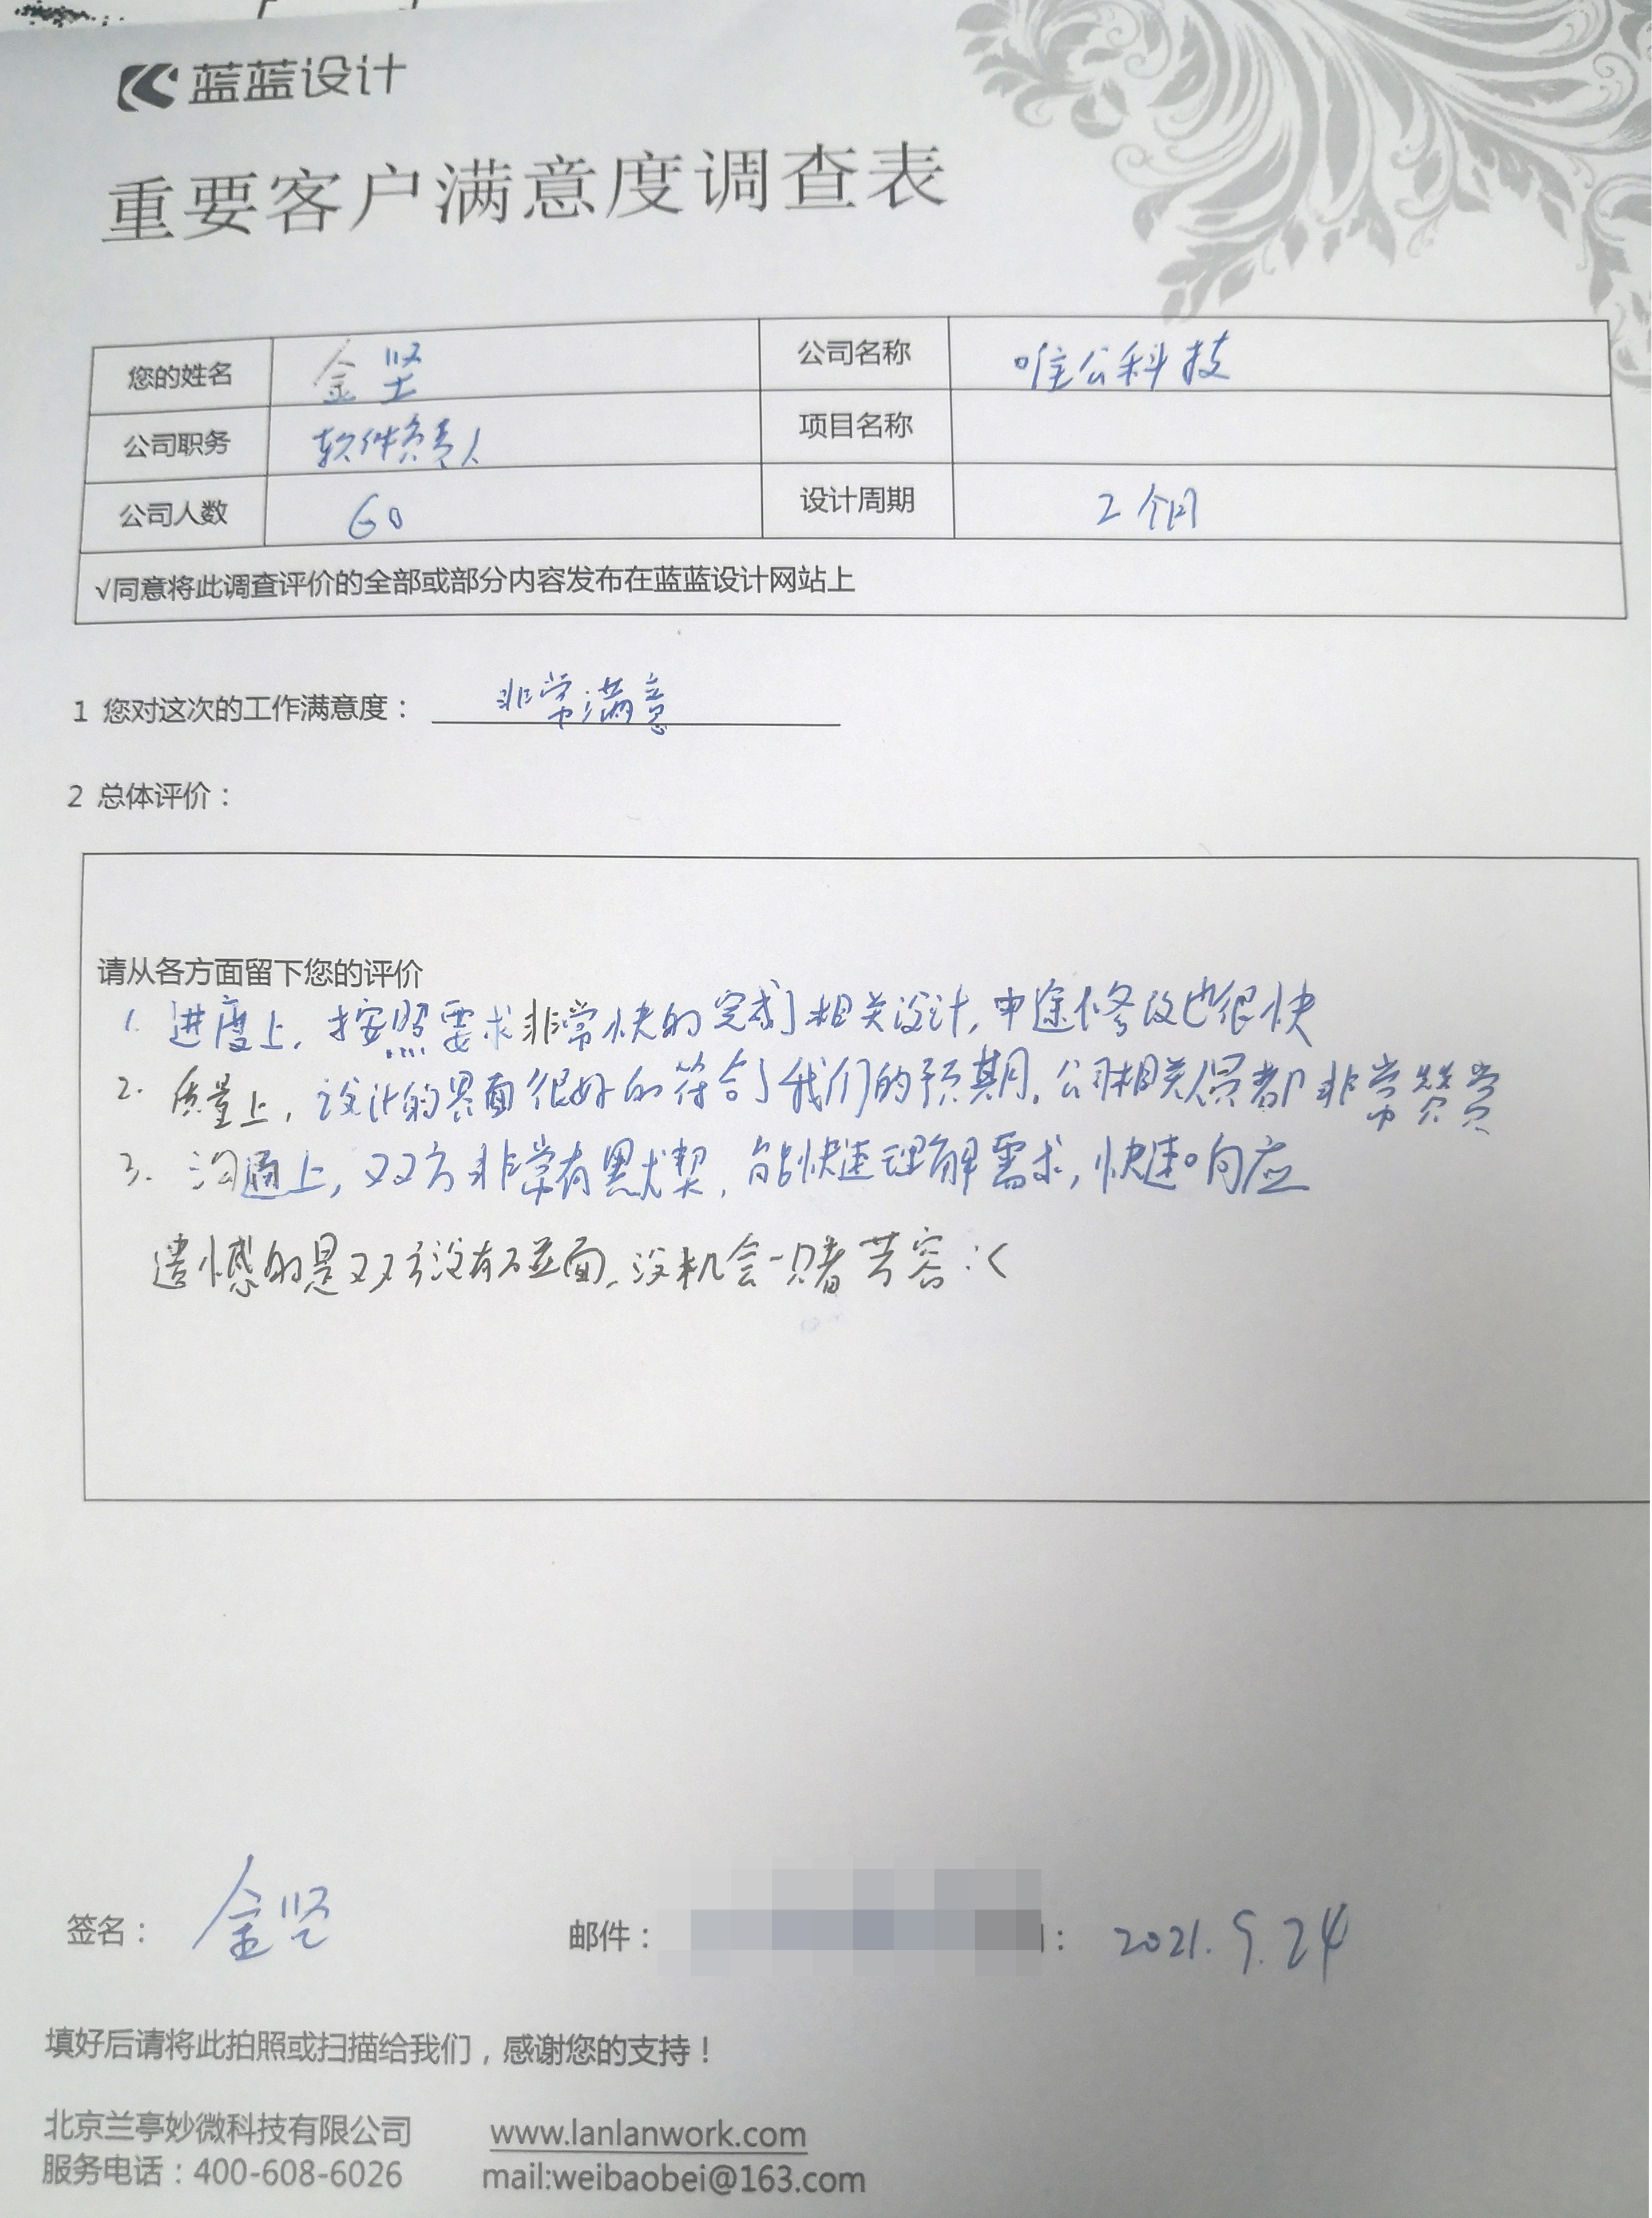 蓝蓝设计
重要客户满意度调查表
您的姓名 金坚 公司名称 唯公科技
公司职务 软件负责人 项目名称
公司人数 60 设计周期 2个月
√同意将此调查评价的全部或部分内容发布在蓝蓝设计网站上
1 您对这次的工作满意度： 非常满意
2 总体评价：
请从各方面留下您的评价
1. 进度上，按照要求非常快的完成了相关设计，中途修改也很快
2. 质量上，设计的界面很好的符合了我们的预期。公司相关人员都非常赞赏
3. 沟通上，双方非常有默契，能快速理解需求，快速响应
遗憾的是双方没有碰面，没机会一睹芳容:(
签名： 金坚 邮件： : 2021.9.24
填好后请将此拍照或扫描给我们，感谢您的支持！
北京兰亭妙微科技有限公司 www.lanlanwork.com
服务电话：400-608-6026 mail:weibaobei@163.com